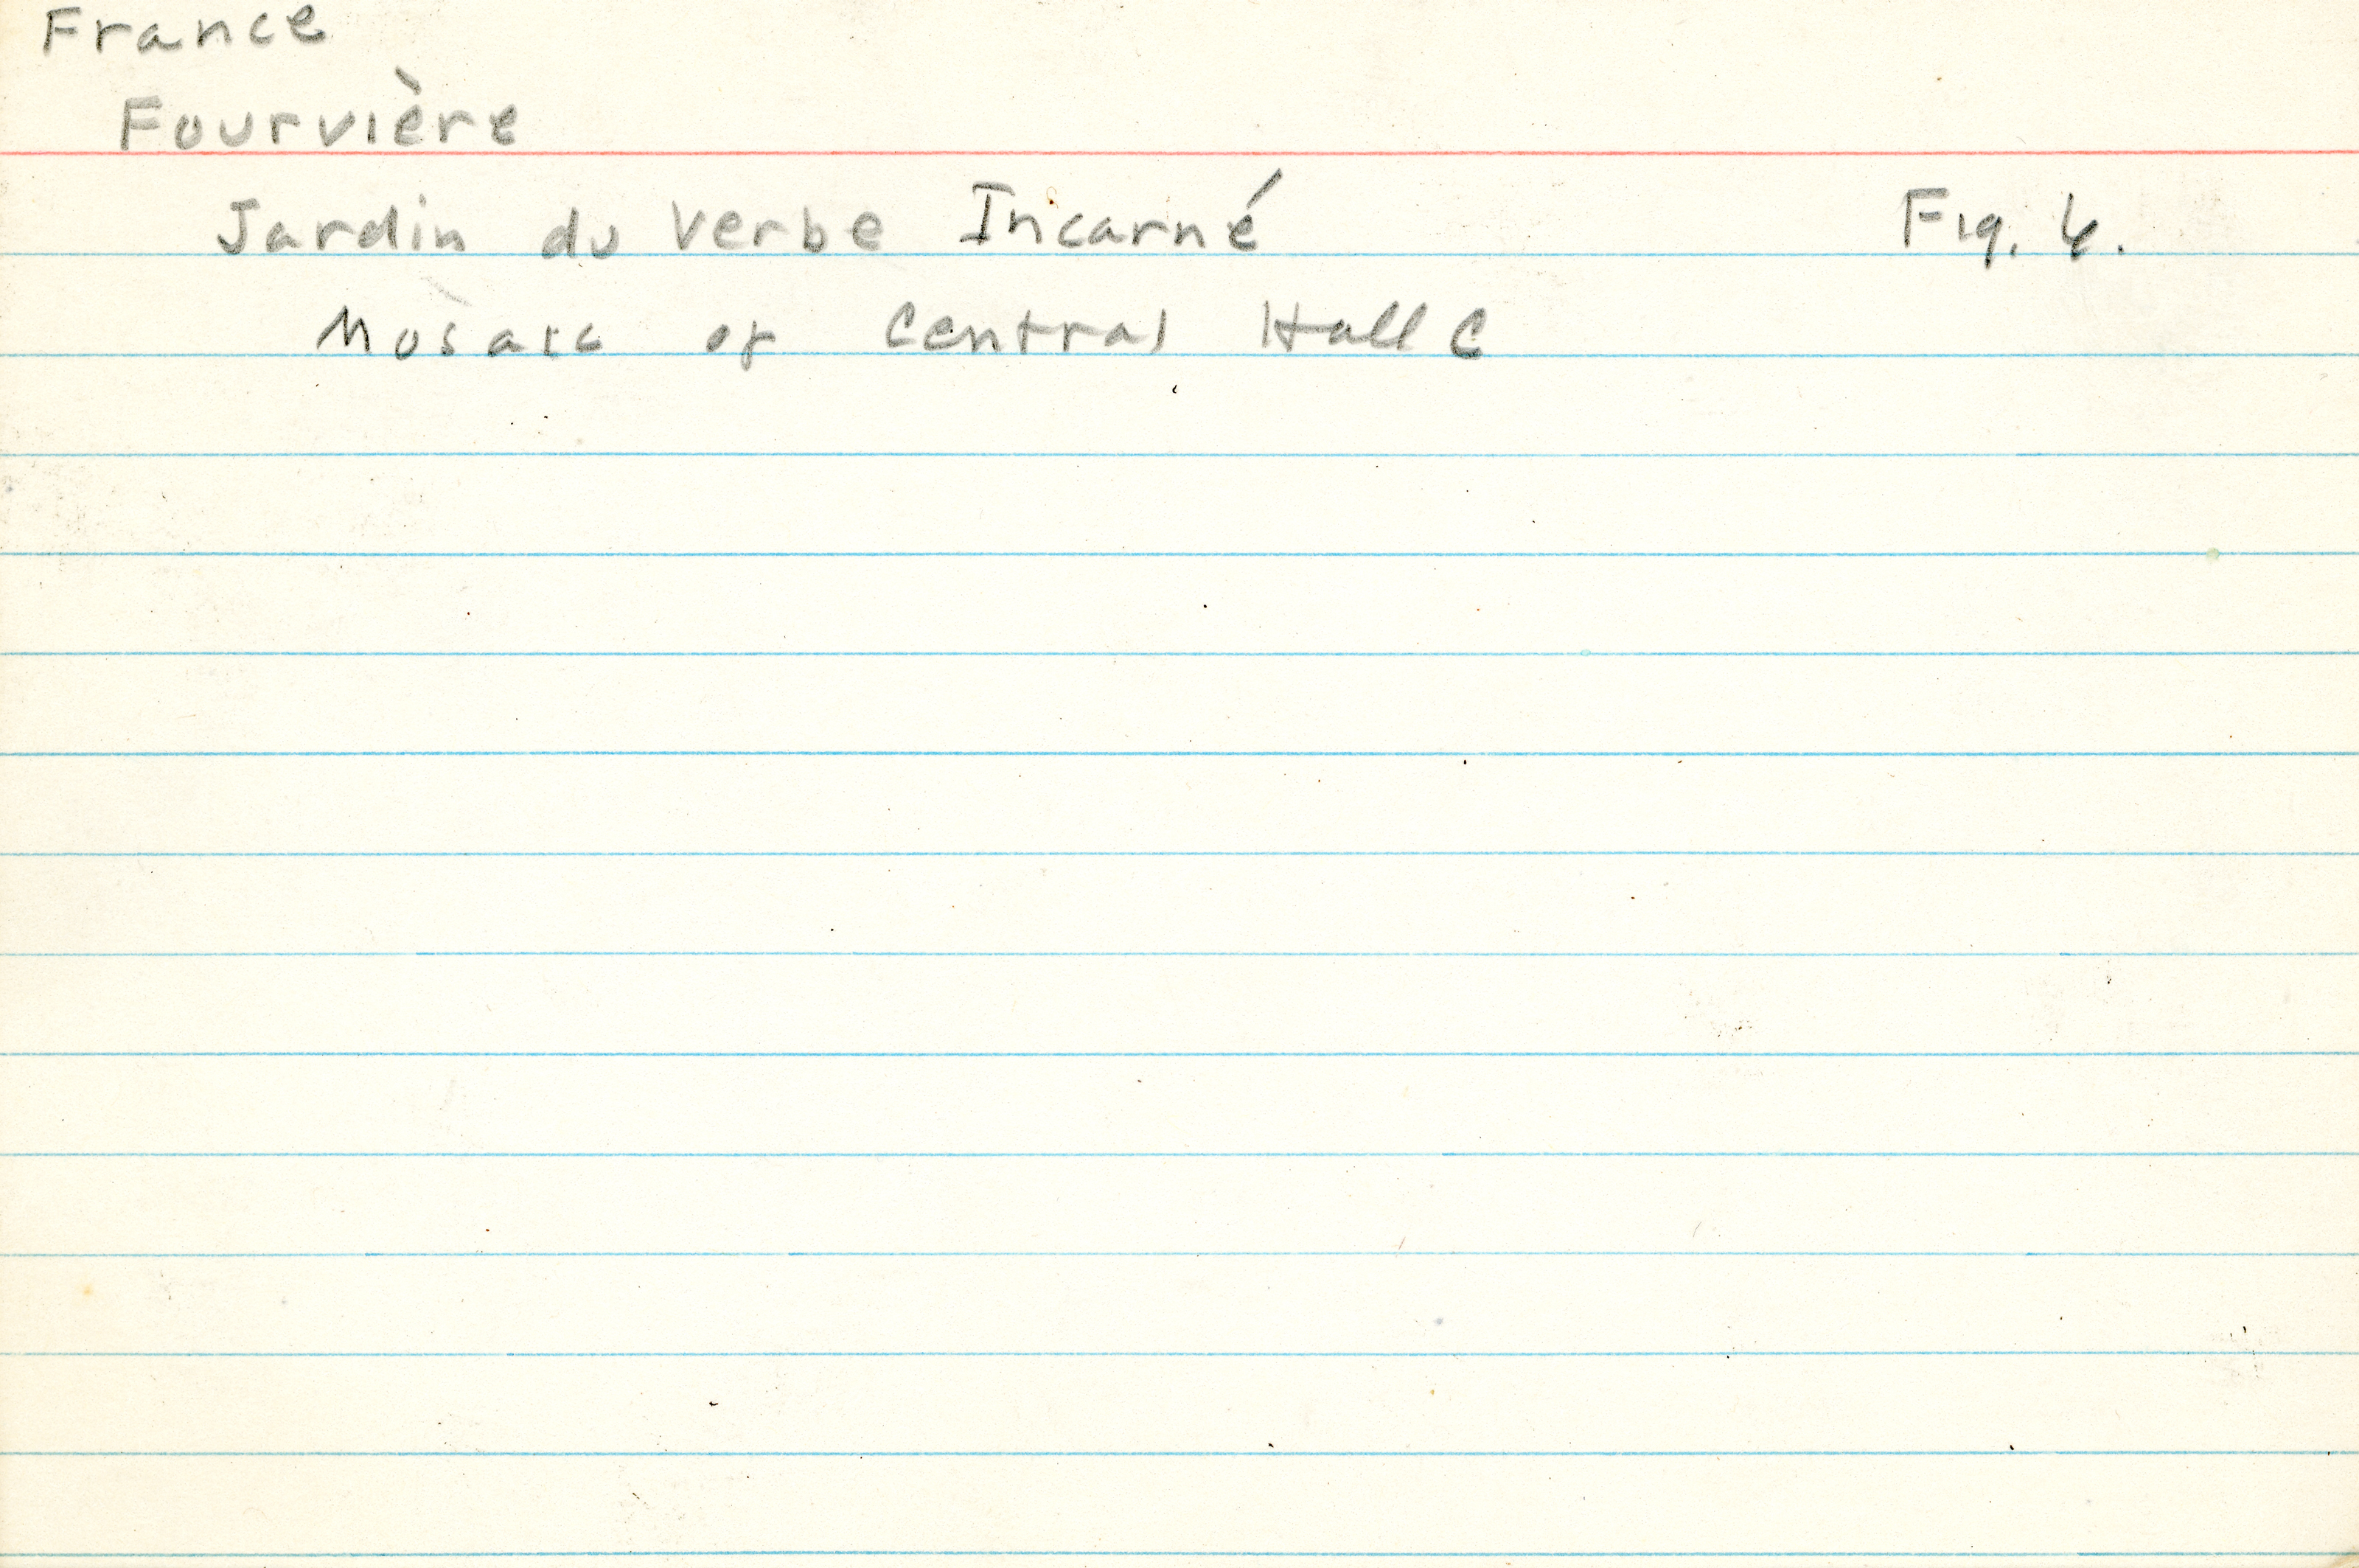 France
Fourvière
Jardin du Verbe Incarné Fig. 6.
Mosaic of Central Hall C